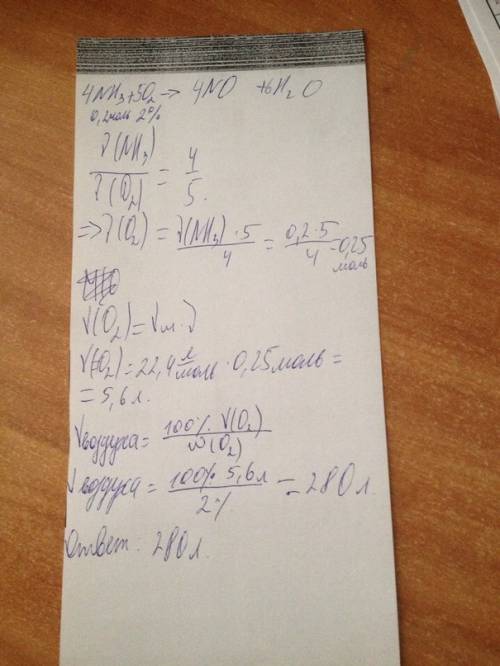 4NH₃+5O₂ → 4NO +6H₂O
0,2моль 2%
ν(NH₃)/ν(O₂) = 4/5
=> ν(O₂) = ν(NH₃)·5/4 = 0,2·5/4 = 0,25 моль
V(O₂)=Vм·ν
V(O₂)=22,4 л/моль · 0,25моль =
= 5,6 л.
Vвоздуха= 100%·V(O₂)/ω(O₂)
Vвоздуха = 100% 5,6л/2% = 280 л.
Ответ: 280 л.